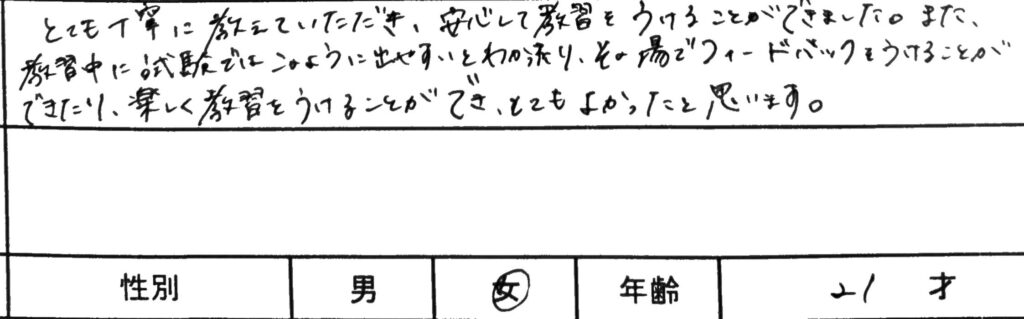 とても丁寧に教えていただき、安心して教習をうけることができました。また、
教習中に試験ではこのように出やすいとわか流り、その場でフィードバックをうけることが
できたり、楽しく教習をうけることができ、とてもよかったと思います。
性別 男 女 年齢 21 才